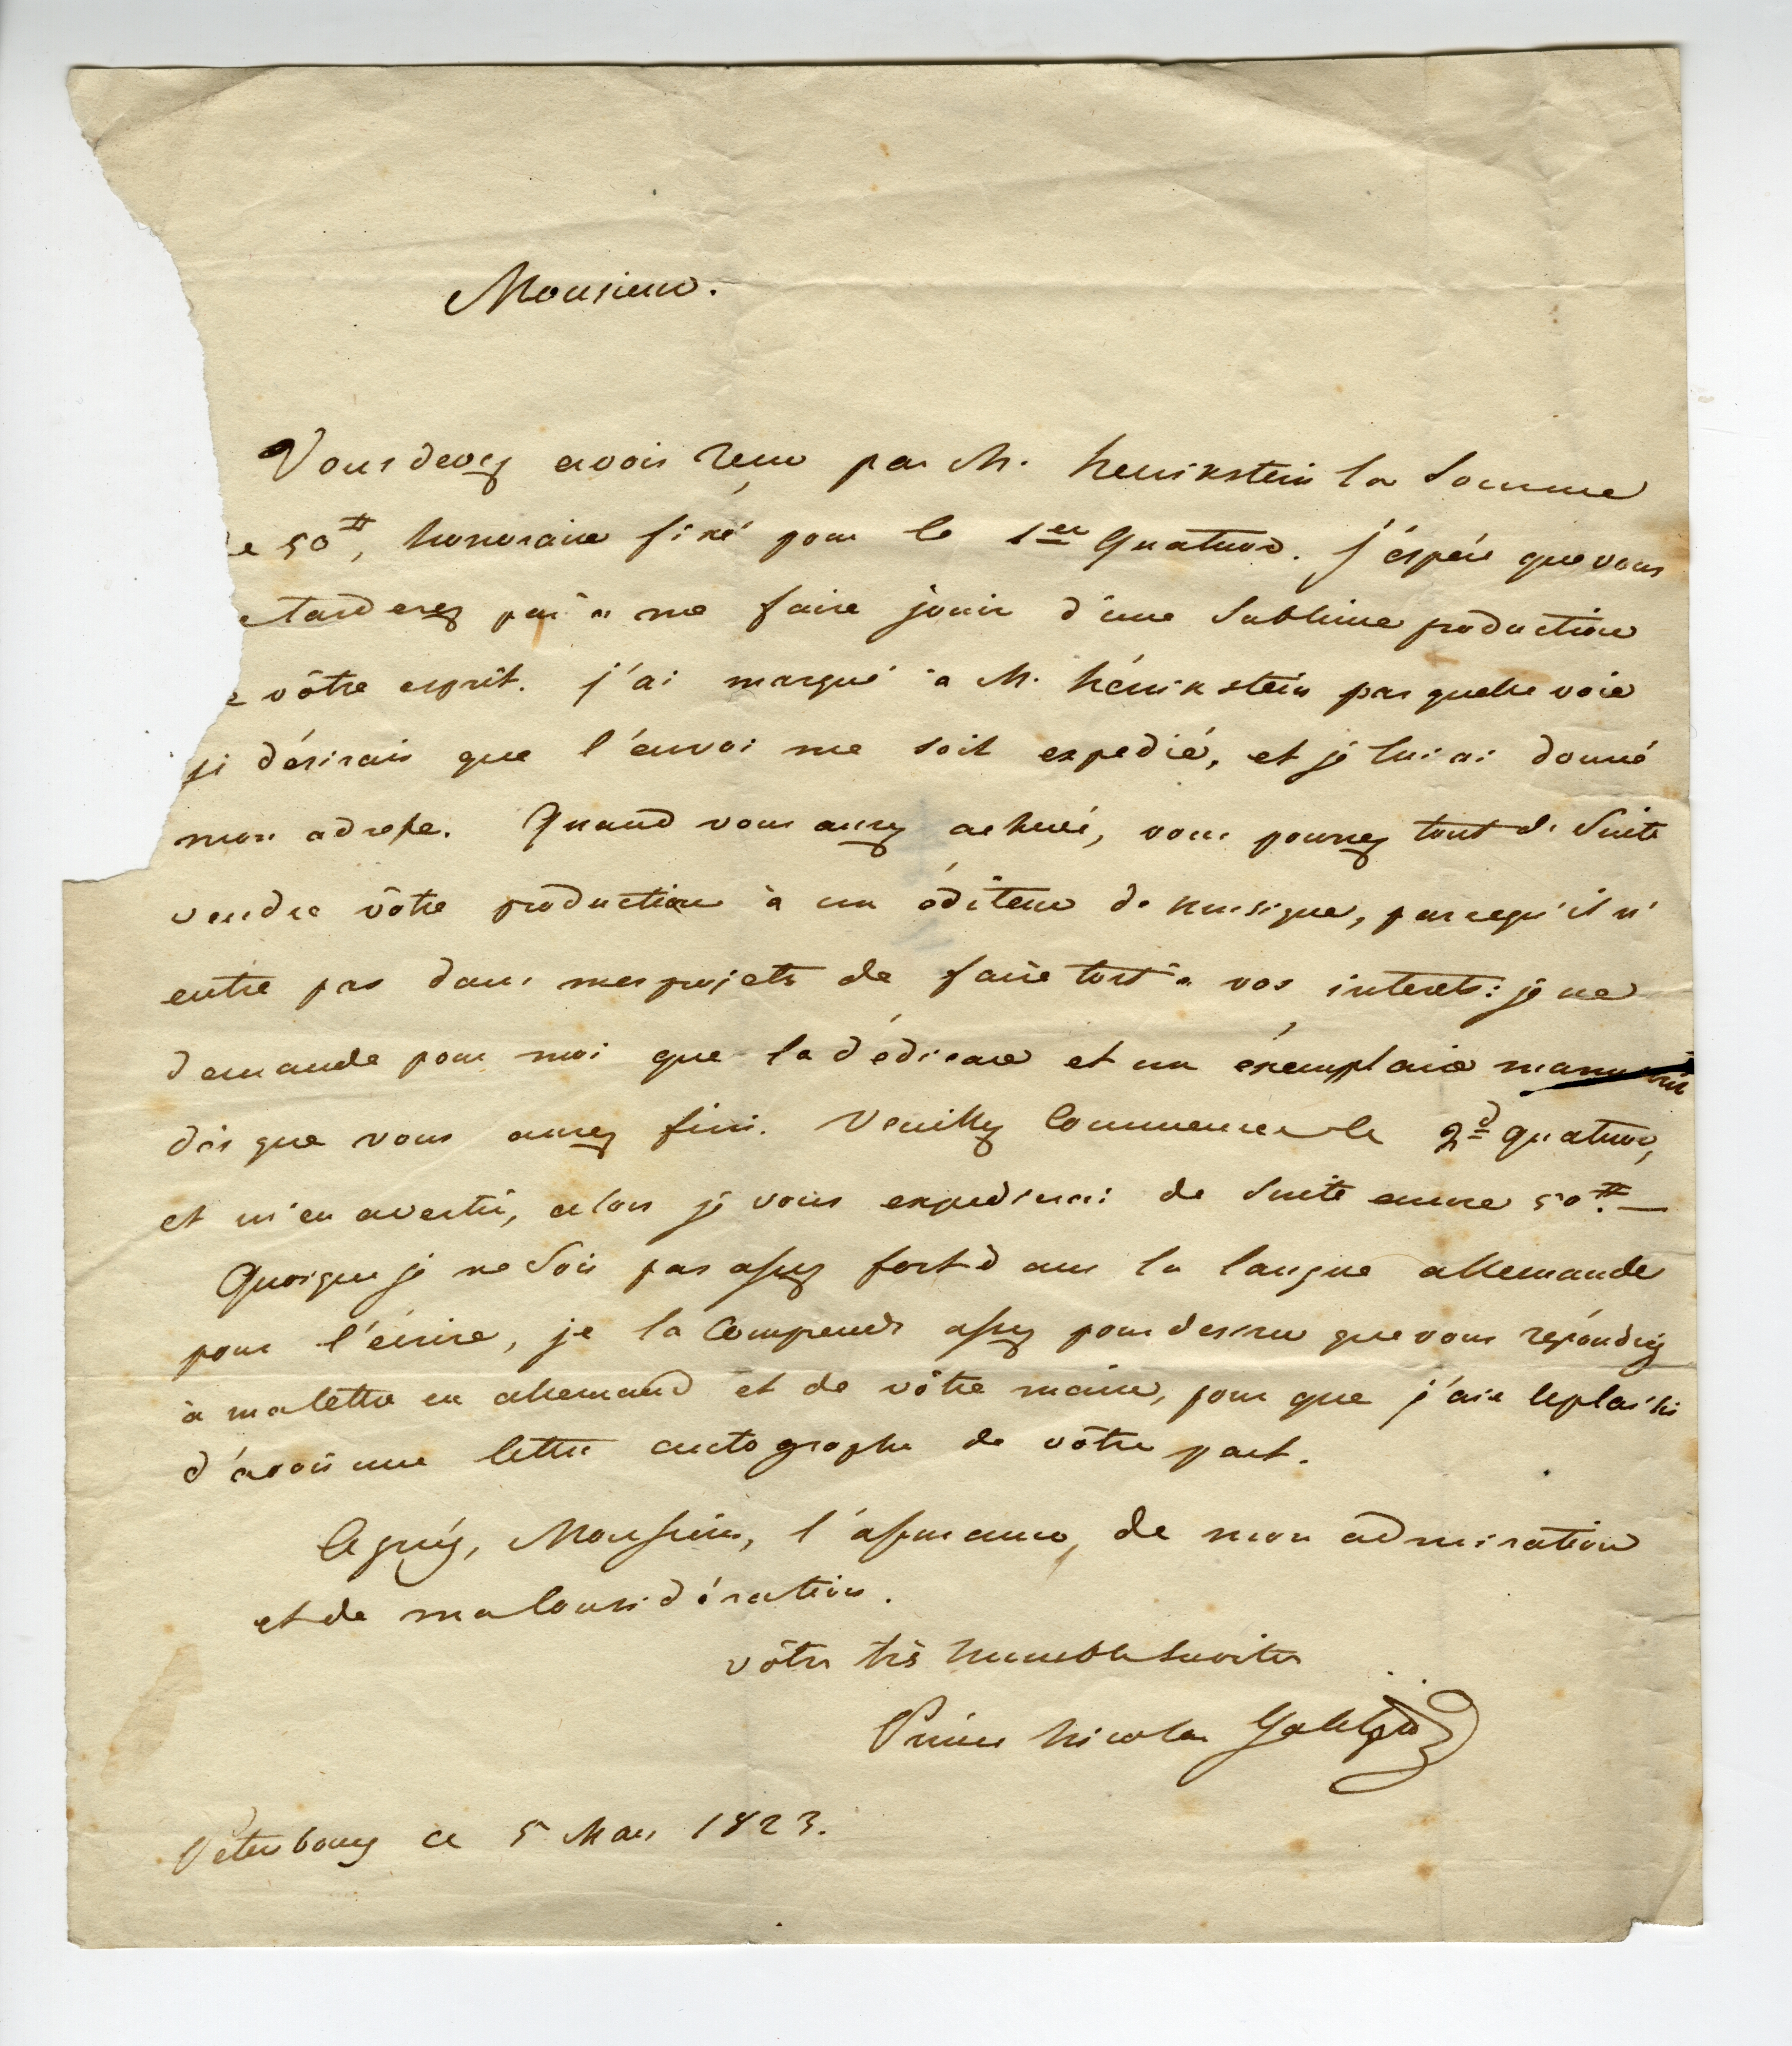 Monsieur.
Vous devez avoir reçu par M. Henikstein la Somme
e 50#, honoraire fixé pour le 1er Quatuor. j'éspére que vous
tarderez pas à me faire jouir d'une Sublime production
e vôtre esprit. j'ai marqué à M. Hénikstein par quelle voie
je désirais que l'envoi me soit expedié, et je lui ai donné
mon adresse. Quand vous aurez achevé, vous pourrez tout de Suite
vendre vôtre production à un éditeur de musique, parcequ'il n'
entre pas dans mes projets de faire tort à vos interets: je ne
demande pour moi que la dédicace et un éxemplaire manuscrit
dès que vous aurez fini. Veuillez Commencer le 2d quatuor,
et m'en avertir, alors je vous expedierai de Suite encore 50#.—
Quoique je ne Sois pas assez fort dans la langue allemande
pour l'écrire, je la Comprends assez pour desirer que vous répondiez
à ma lettre en allemand et de vôtre main, pour que j'aie le plaisir
d'avoir une lettre autographe de vôtre part.
Agréez, Monsieur, l'assurance, de mon admiration
et de ma Considération.
vôtre très humble Serviteur
Prince Nicolas Galitzin
Petersbourg ce 5 Mars 1823.